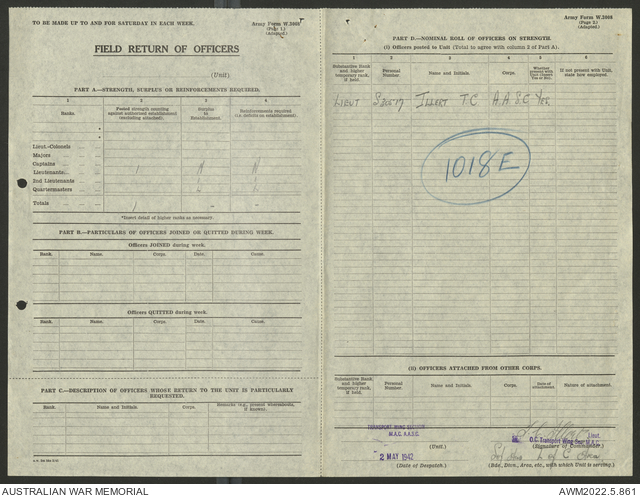 TO BE MADE UP TO AND FOR SATURDAY IN EACH WEEK.
Army Form W.3008
(Page 1.)
(Adapted.)
FIELD RETURN OF OFFICERS
(Unit)
PART A.—STRENGTH, SURPLUS OR REINFORCEMENTS REQUIRED.
1 2 3 4
Ranks.
Posted strength counting against authorized establishment (excluding attached).
Surplus to Establishment.
Reinforcements required (i.e. deficits on establishment).
Lieut.-Colonels
Majors
Captains
Lieutenants
2nd Lieutenants
Quartermasters
Totals
*Insert detail of higher ranks as necessary.
PART B.—PARTICULARS OF OFFICERS JOINED OR QUITTED DURING WEEK.
Officers JOINED during week.
Rank. Name. Corps. Date. Cause.
Officers QUITTED during week.
Rank. Name. Corps. Date. Cause.
PART C.—DESCRIPTION OF OFFICERS WHOSE RETURN TO THE UNIT IS PARTICULARLY REQUESTED.
Rank. Name. Corps. Remarks (e.g., present whereabouts, if known).
Army Form W.3008
(Page 2.)
(Adapted.)
PART D.—NOMINAL ROLL OF OFFICERS ON STRENGTH.
(i) Officers posted to Unit (Total to agree with column 2 of Part A).
1 2 3 4 5 6
Substantive Rank and higher temporary rank, if held.
Personal Number.
Name and Initials.
Corps.
Whether present with Unit (Insert Yes or No).
If not present with Unit, state how employed.
LIEUT T.C. A.A.S.C YES
1018E
(ii) OFFICERS ATTACHED FROM OTHER CORPS.
Substantive Rank and higher temporary rank, if held.
Personal Number.
Name and Initials.
Corps.
Date of attachment.
Nature of attachment.
TRANSPORT WING SECTION
M.A.C. A.A.S.C.
(Unit.)
2 MAY 1942
(Date of Despatch.)
Lieut.
O.C. Transport Wing
(Signature of Commander.)
L of C Area
(Bde., Divn., Area, etc., with which Unit is serving.)
AUSTRALIAN WAR MEMORIAL
AWM2022.5.861